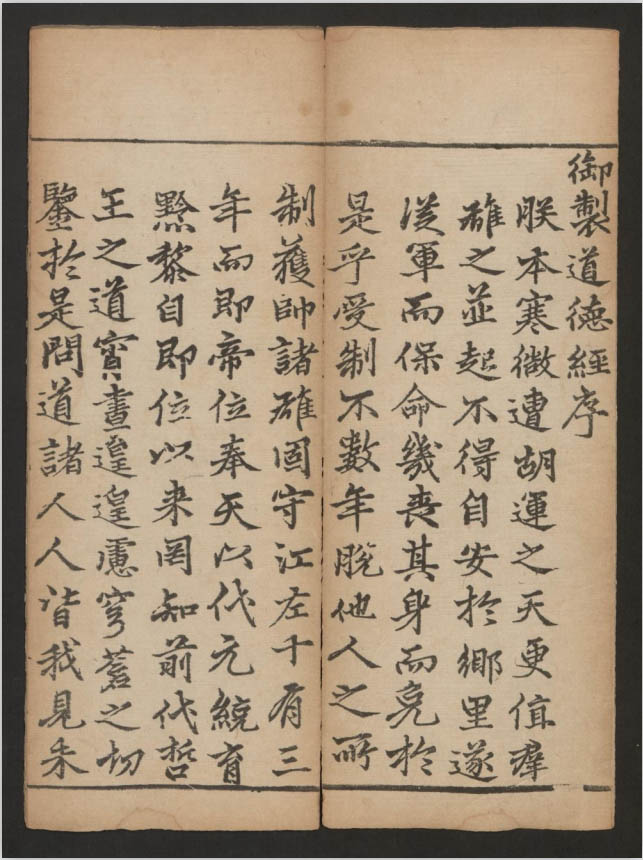 御製道德經序
朕本寒微遭胡運之天更值群
雄之並起不得自安於鄉里遂
從軍而保命幾喪其身而免於
是乎受制不數年脫他人之所
制獲帥諸雄固守江左十有三
年而即帝位奉天以代元統育
黔黎自即位以来罔知前代哲
王之道宵晝遑遑慮穹蒼之切
鑒於是問道諸人人皆我見未